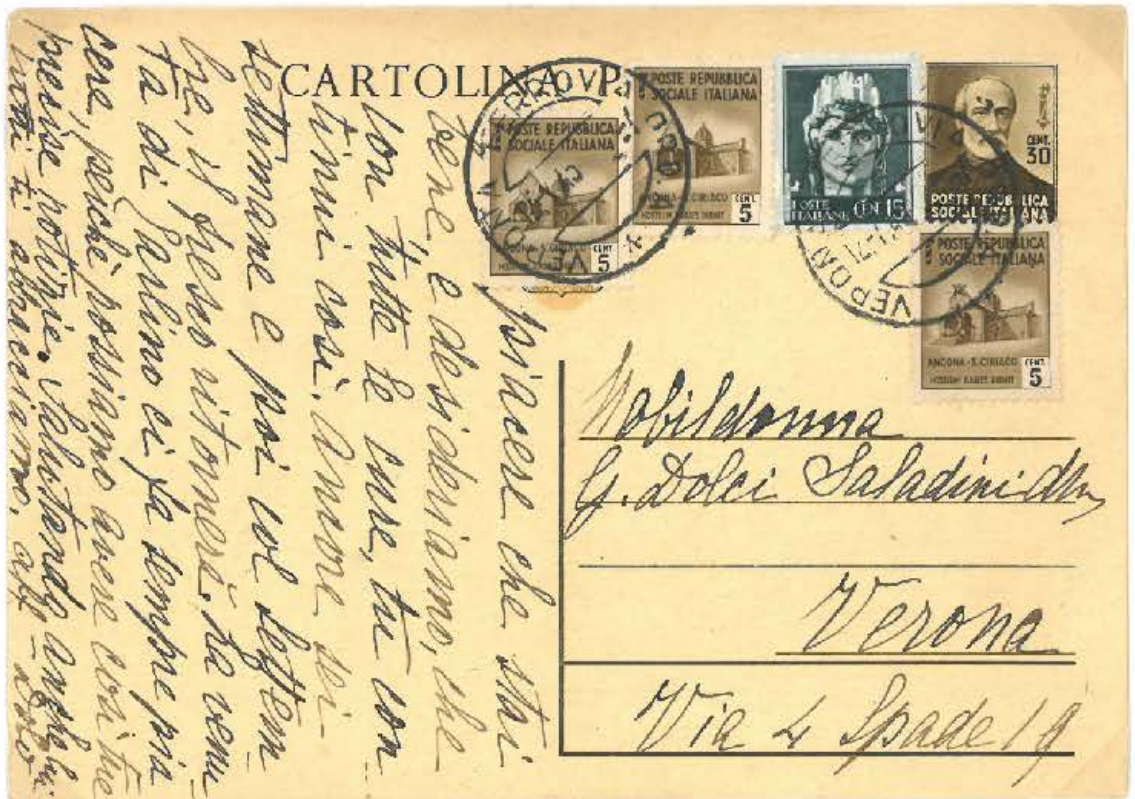 CARTOLINA P
POSTE REPUBBLICA
SOCIALE ITALIANA
ANCONA - S. CIRIACO
HOSTIUM RABIES DIRUIT
CENT.
5
POSTE REPUBBLICA
SOCIALE ITALIANA
ANCONA
HOSTIUM RABIES DIRUIT
CENT.
5
POSTE
ITALIANE
CEN. 15
CENT.
30
POSTE REPUBBLICA
SOCIALE ITALIANA
POSTE REPUBBLICA
SOCIALE ITALIANA
ANCONA - S. CIRIACO
HOSTIUM RABIES DIRUIT
CENT.
5
VERONA
FERROVIA
VERONA
Nobildonna
G. Dolci Saladini
Verona
Via 4 Spade 19
piacere che stai
bene, e desideriamo, che
con tutte le cure, tu con
tinui così. Ancora sei
settimane e poi col settem
bre, il Hesus ritornerà. La venu
ta di Paolino ci fa sempre pia
cere, perché possiamo avere così tue
precise notizie. Salutando anche lui
tutti ti abbracciamo, aff.